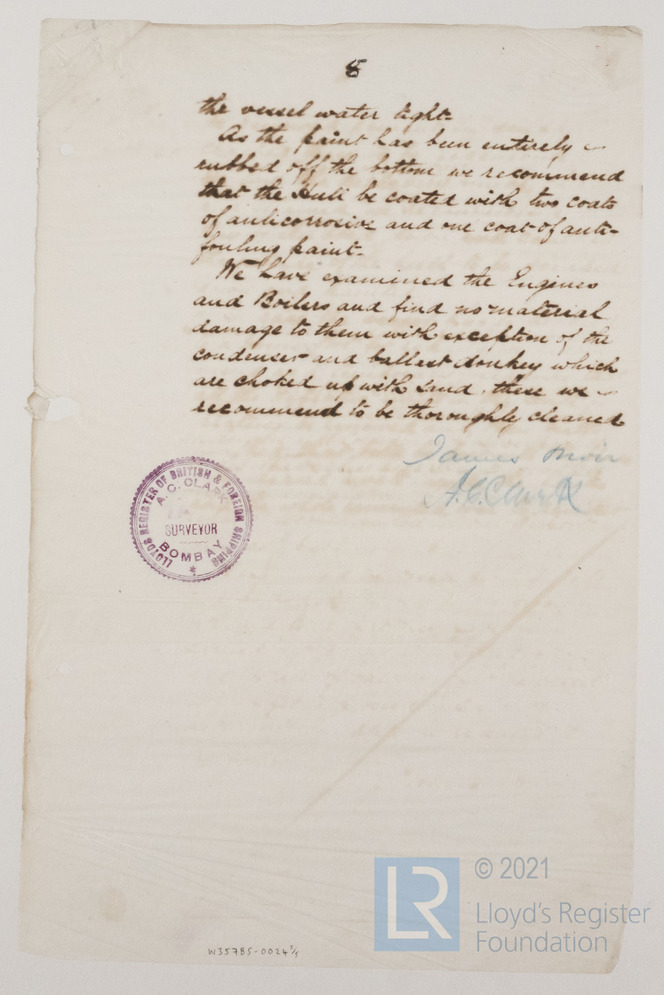 8
the vessel water tight
As the paint has been entirely
rubbed off the bottom we recommend
that the Hull be coated with two coats
of anticorrosive and one coat of anti-
fouling paint.
We have examined the Engines
and Boilers and find no material
damage to them with exception of the
condenser and ballast donkey which
are choked up with sand. these we
recommend to be thoroughly cleaned
James Muir
A.C. Clark
LLOYDS REGISTER OF BRITISH & FOREIGN SHIPPING
A. C. CLARK
SURVEYOR
BOMBAY
W357BS-0024
LR
© 2021
Lloyd's Register
Foundation